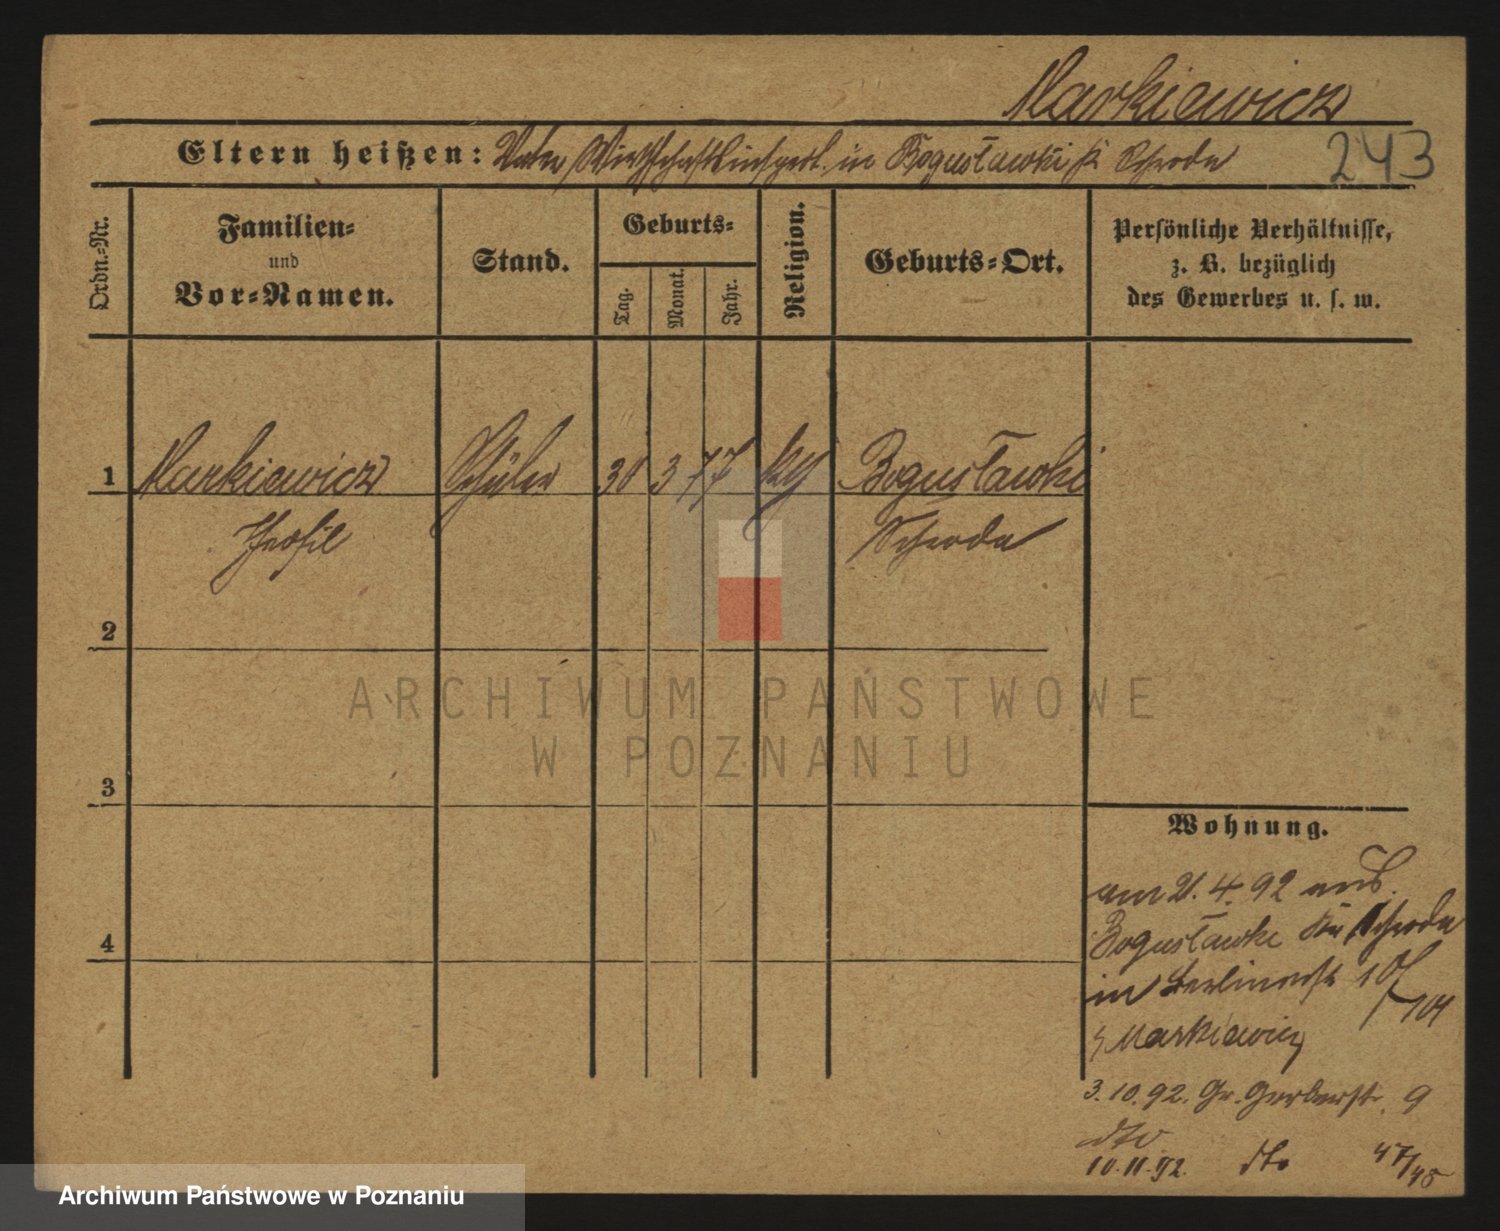 Markiewicz
Eltern heißen: Vater, Wirthschaftsinspect. in Bogusławki, K. Schroda
243
Ordn.-Nr.
Familien-
und
Vor-Namen.
Stand.
Geburts-
Tag.
Monat.
Jahr.
Religion.
Geburts-Ort.
Persönliche Verhältnisse,
z. B. bezüglich
des Gewerbes u. s. w.
1 Markiewicz Schüler 30 3 77 Bogusławki
Theofil Schroda
2
3
4
Wohnung.
am 21.4.92 aus
Bogusławki Schroda
in Berlinerstr 10/
101
Markiewicz
3.10.92. Gr. Gerberstr. 9
dto
10.11.92. dto 47/48
ARCHIWUM PAŃSTWOWE
W POZNANIU
Archiwum Państwowe w Poznaniu